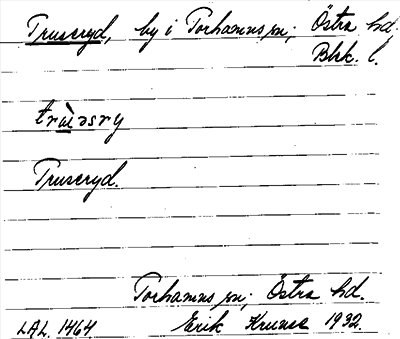 Truseryd, by i Torhamns sn; Östra hd.
Blek. l.
Truseryd.
Torhamns sn; Östra hd.
LAL. 1464 Erik 1932.